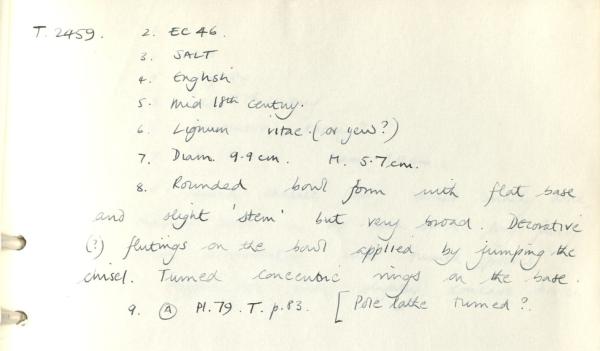 T. 2459. 2. EC 46.
3. SALT
4. English
5. Mid 18th century.
6. Lignum vitae. (or yew?)
7. Diam. 9.9 cm. H. 5.7 cm.
8. Rounded bowl form with flat base
and slight 'stem' but very broad. Decorative
(?) flutings on the bowl applied by jumping the
chisel. Turned concentric rings on the base.
9. Ⓐ Pl. 79. T. p. 83. [Pole lathe turned?.